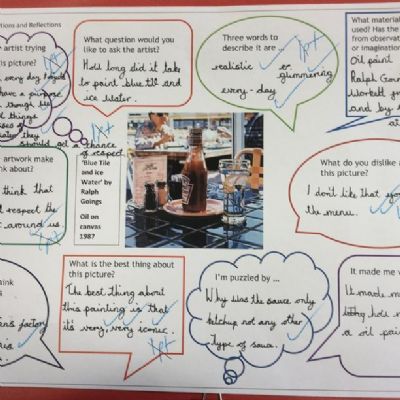 tions and Reflections
artist trying
this picture?
every day
have a purpose
things
they
should get a chance
of respect
What question would you
like to ask the artist?
How long did it take
to paint blue tile and
ice water.
Three words to
describe it are
realistic
glimmering
every-day
What material
used? Has the
from observat
or imagination
Oil paint
Ralph Goin
and by
artwork make
nk about?
think that
respect the
around us.
'Blue Tile
and Ice
Water' by
Ralph
Goings
Oil on
canvas
1987
What do you dislike a
this picture?
I don't like that you
the menu.
nk
factory
What is the best thing about
this picture?
The best thing about
this painting is that
it's very, very iconic.
I'm puzzled by ...
Why was the sauce only
ketchup not any other
type of sauce.
It made me w
It made m
how
a oil pain